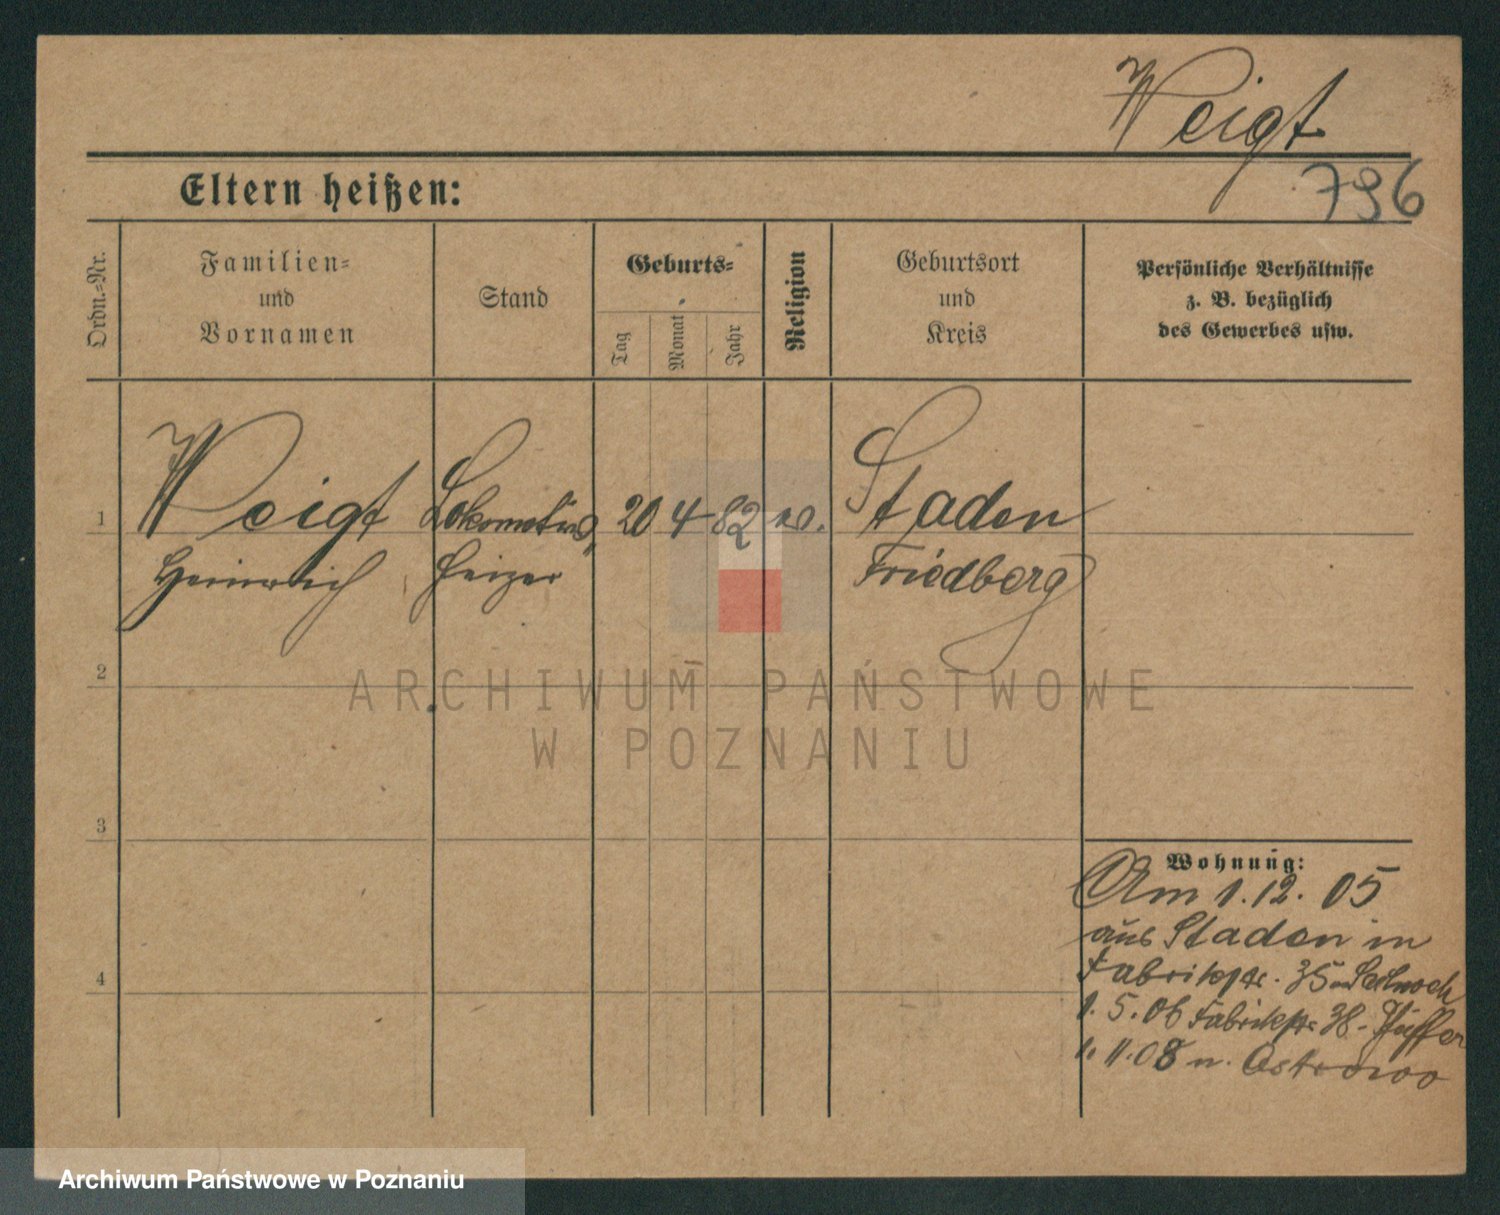 Weigt
796
Eltern heißen:
Ordn.-Nr.
Familien-
und
Vornamen
Stand
Geburts-
Tag
Monat
Jahr
Religion
Geburtsort
und
Kreis
Persönliche Verhältnisse
z. B. bezüglich
des Gewerbes usw.
1
Weigt
Heinrich
heizer
20
4
82
Staden
Friedberg
2
ARCHIWUM PAŃSTWOWE
W POZNANIU
3
4
Wohnung:
Am 1.12.05
aus Staden in
Fabrikstr. 35
1.5.06 Fabrikstr 38
1.11.08 n. Ostrowo
Archiwum Państwowe w Poznaniu